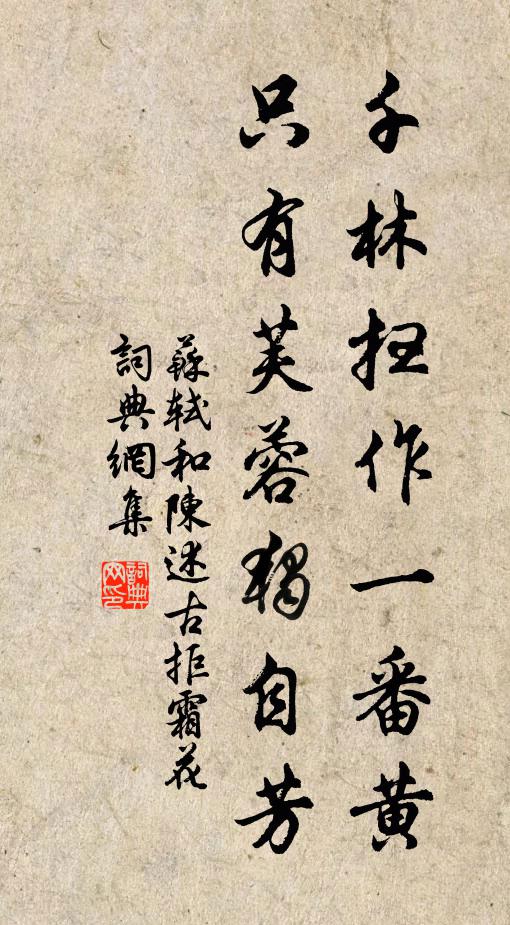 千林扫作一番黄
只有芙蓉獨自芳
蘇軾和陳述古拒霜花
詞典網集
詞典网印